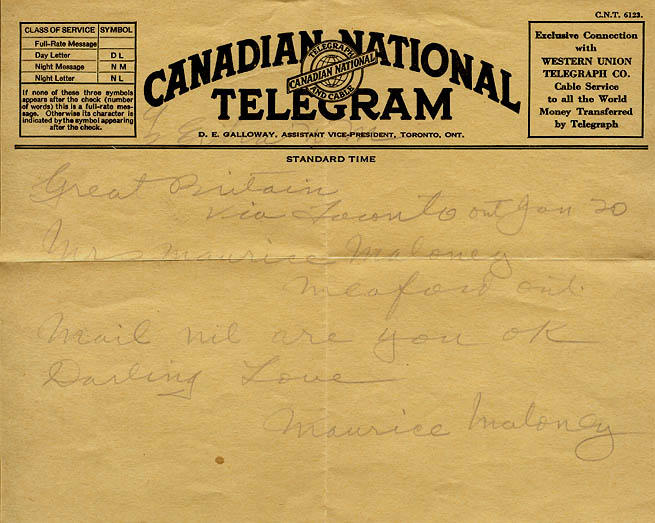 C.N.T. 6123.
CLASS OF SERVICE SYMBOL
Full-Rate Message
Day Letter D L
Night Message N M
Night Letter N L
If none of these three symbols
appears after the check (number
of words) this is a full-rate mes-
sage. Otherwise its character is
indicated by the symbol appearing
after the check.
CANADIAN NATIONAL
TELEGRAPH
CANADIAN NATIONAL
AND CABLE
TELEGRAM
D. E. GALLOWAY, ASSISTANT VICE-PRESIDENT, TORONTO, ONT.
Exclusive Connection
with
WESTERN UNION
TELEGRAPH CO.
Cable Service
to all the World
Money Transferred
by Telegraph
STANDARD TIME
Great Britain
via Toronto ont Jan 20
Mrs Maurice Maloney
Meaford ont.
Mail nil are you ok
Darling Love
Maurice Maloney